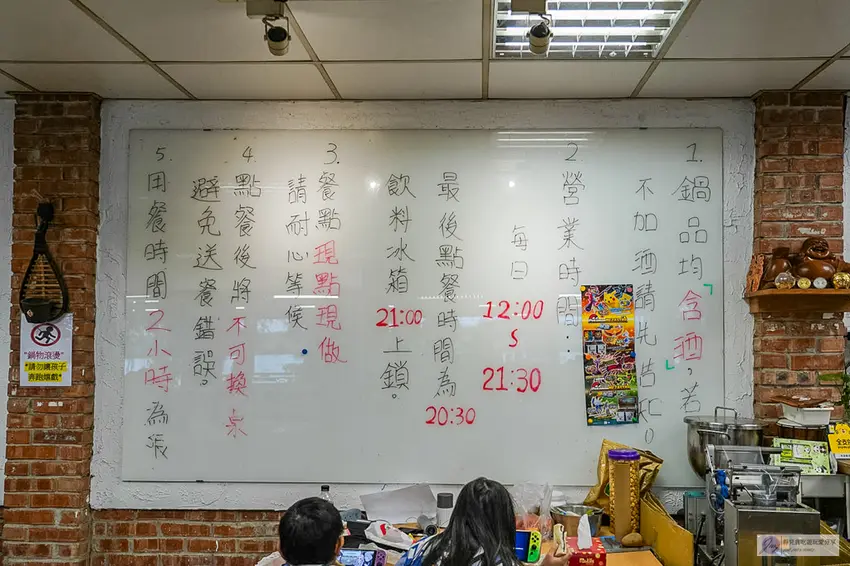 1.
鍋品均含酒,若
不加酒請先告知。
2.
營業時間:
每日
12:00
S
21:30
最後點餐時間為
20:30
飲料冰箱
21:00
上鎖。
3.
餐點現點現做
請耐心等候
4.
點餐後將不可換桌
避免送餐錯誤。
5.
用餐時間2小時為限
"鍋物滾燙"
*請勿讓孩子
奔跑嬉戲*